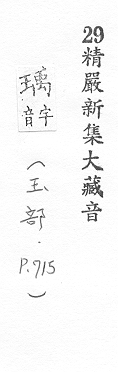 29精嚴新集大藏音
瑀
音字
（玉部．P.715）